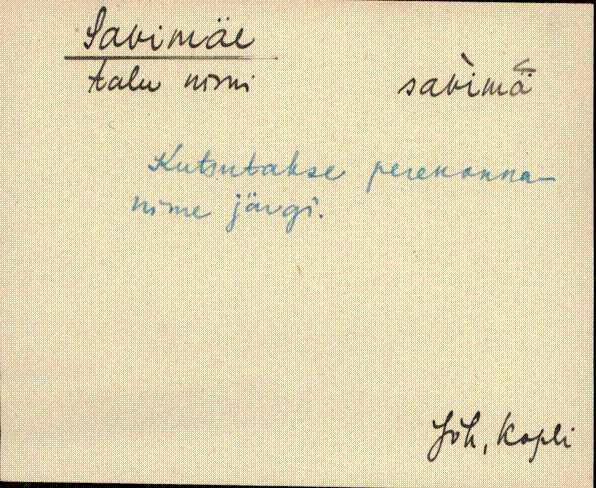 Savimäe
talu nimi savìmä
Kutsutakse perekonna-
nime järgi.
Jõh, Kopli